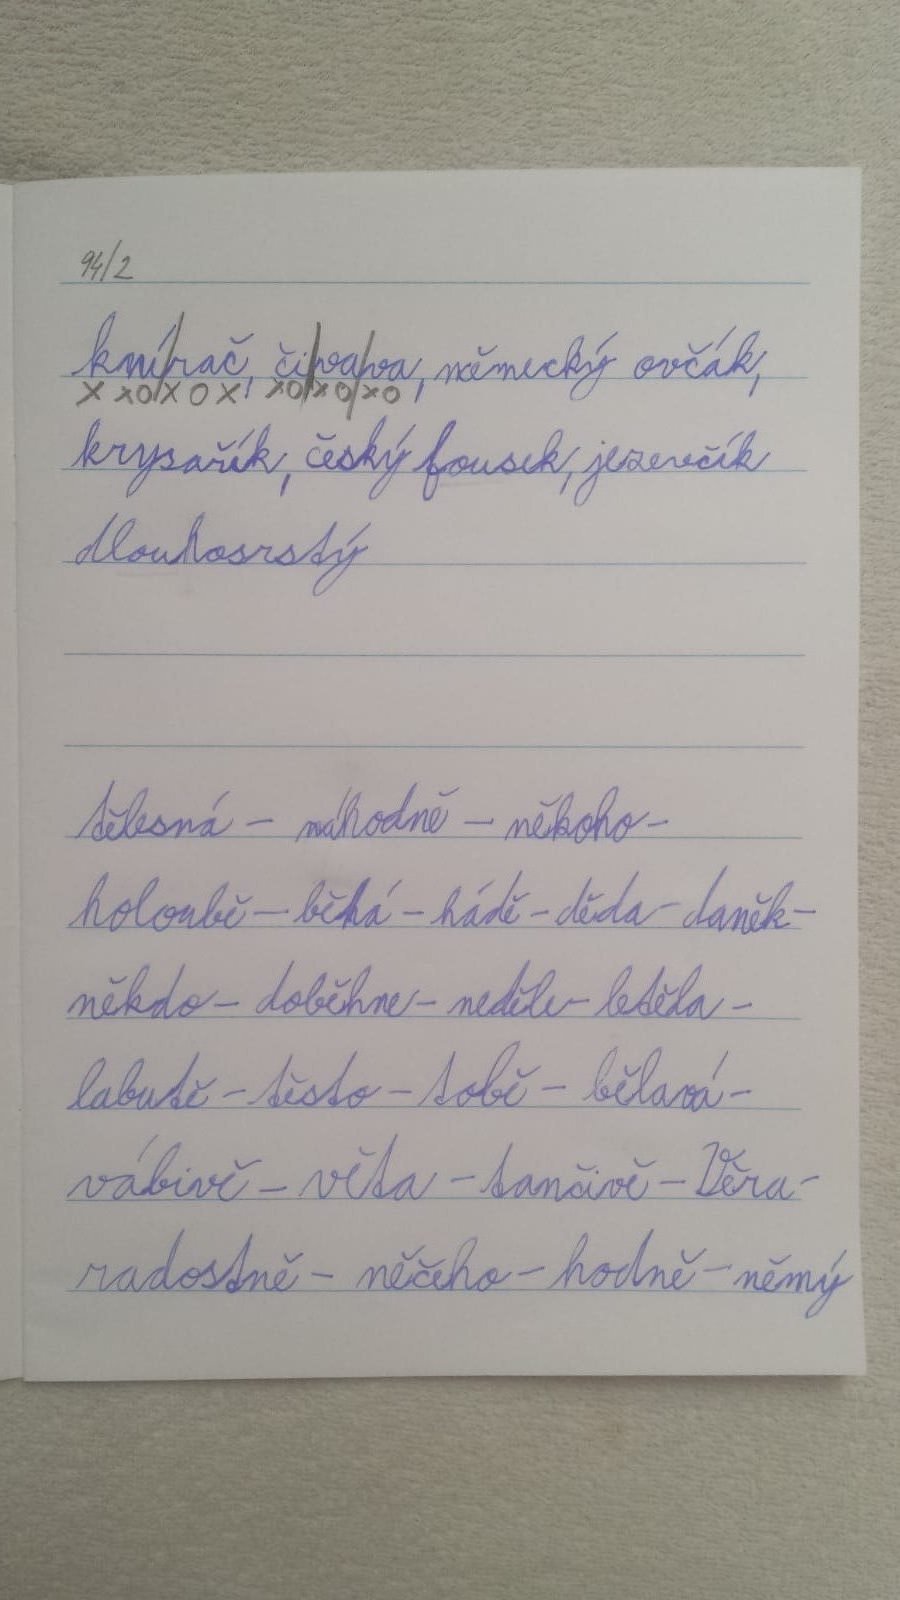 94/2
knírač, čivava, německý ovčák,
x xo/xox, xo/xo/xo
krysařík, český fousek, jezevčík
dlouhosrstý
tělesná - náhodně - někoho -
holoubě - běhá - hádě - děda - daněk -
někdo - doběhne - neděle - letěla -
labutě - těsto - tobě - bělavá -
vábivě - věta - tančivě - Věra -
radostně - něčeho - hodně - němý